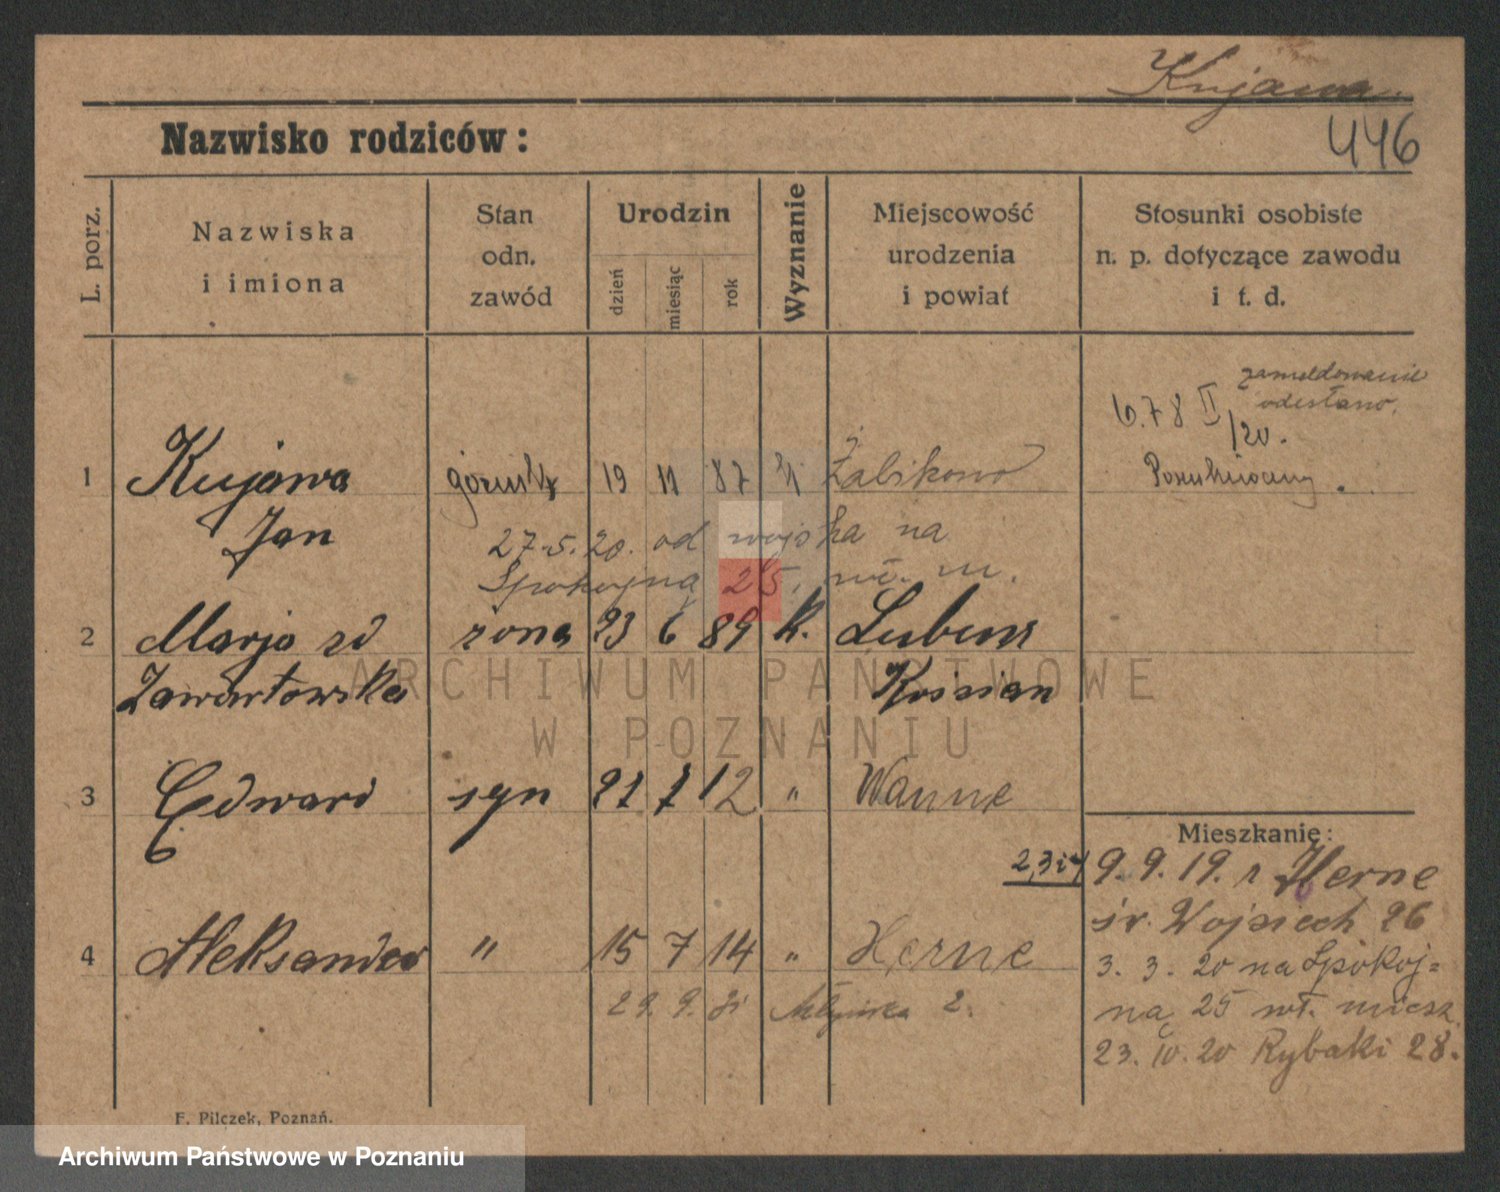 Kujawa
Nazwisko rodziców:
446
L. porz.
Nazwiska
i imiona
Stan
odn.
zawód
Urodzin
dzień
miesiąc
rok
Wyznanie
Miejscowość
urodzenia
i powiat
Stosunki osobiste
n. p. dotyczące zawodu
i t. d.
zameldowanie
odesłano.
6.78 II/20.
1 Kujawa górnik 19 11 87 k Żabikowo
Jan
27.5.20. od wojska na
Spokojną 25, wł. m.
2 Marja zd żona 23 6 89 k. Lubin
Zawartowska
3 Edward syn 21 7 12 " Wanne
Mieszkanie:
2,3i4 9.9.19. z Herne
św. Wojciech 26
4 Aleksander " 15 7 14 " Herne
3.3.20 na Spokoj=
ną 25 wł. miesz.
29.9.21 Młyńska 2.
23.10.20 Rybaki 28.
F. Pilczek, Poznań.
ARCHIWUM PAŃSTWOWE
W POZNANIU
Archiwum Państwowe w Poznaniu